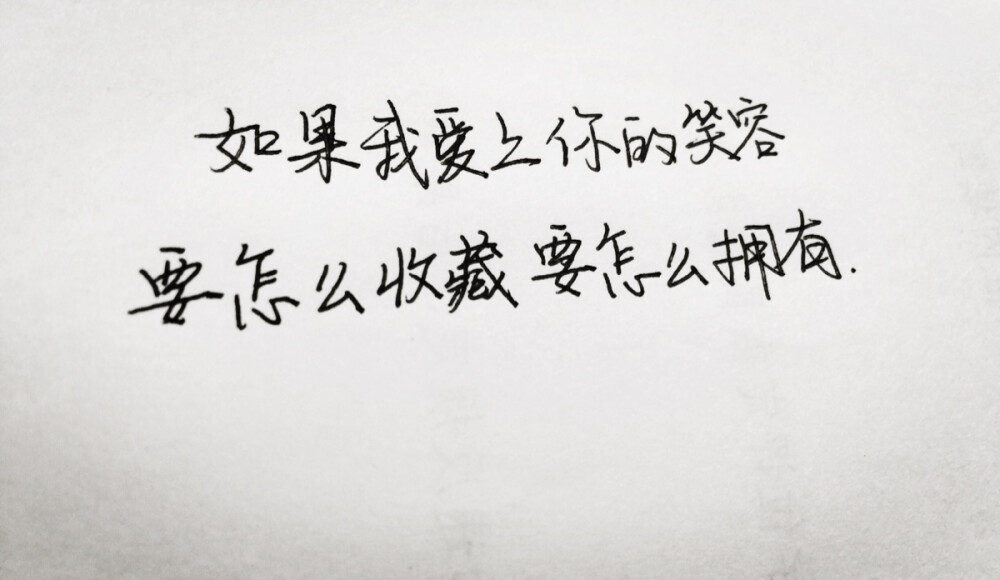 如果我爱上你的笑容
要怎么收藏 要怎么拥有.